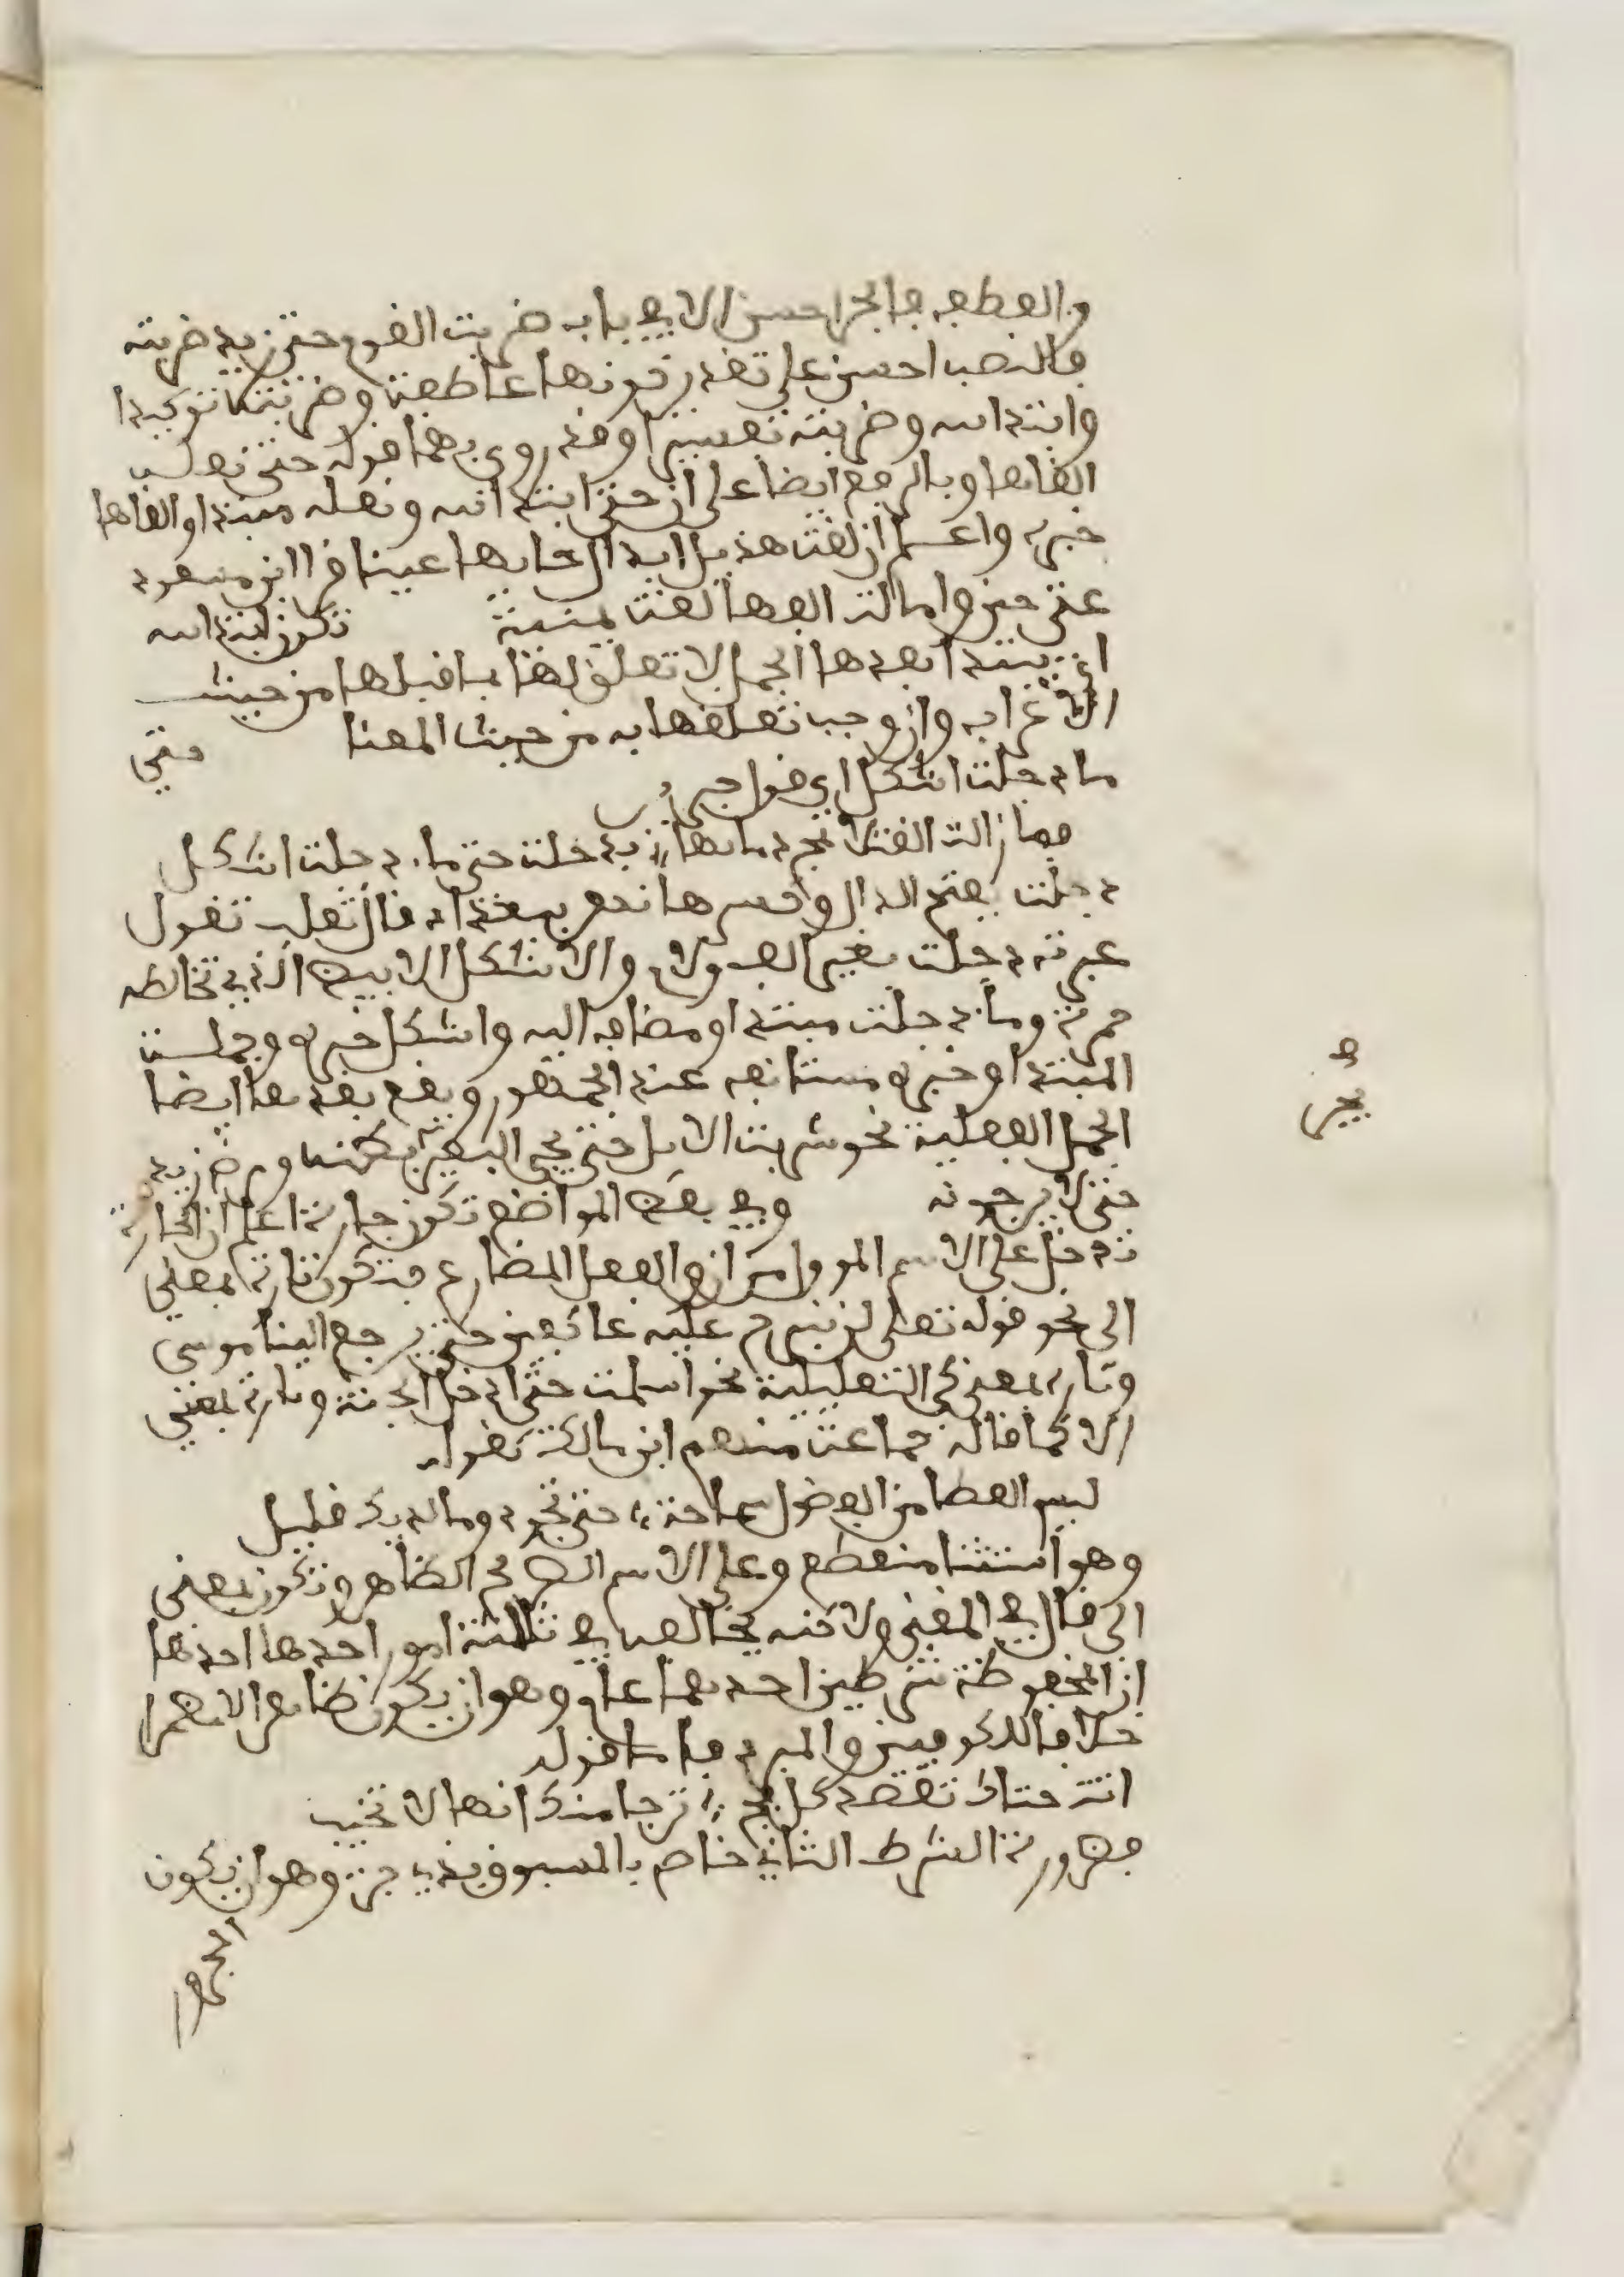 والعطف فالجر احسن الا في باب ضربت القوم حتى زيد ضربته
فالنصب احسن على تقدير كونها عاطفة وضربته توكيدا
وابتدائية وضربته تفسيرا وقد روي بهما قوله حتى نعله
القاها وبالرفع ايضا على ان حتى ابتدائية ونعله مبتدا والقاها
خبره واعلم ان لغة هذيل ابدال حائها عينا قرا ابن مسعود
عتى حين واما الفها لغة يمنية تكون ابتدائية
اي يبتدا بعدها الجمل لا تعلق لها بما قبلها من حيث
الاعراب وان وجب تعلقها به من حيث المعنا حتى
ماء دجلة اشكل اي قول جرير
فما زالت القتلا تمج دماءها بدجلة حتى ماء دجلة اشكل
دجلة بفتح الدال وكسرها نهر ببغداد قال ثعلب تقول
عبرت دجلة بغير الف ولام والاشكل الابيض الذي تخالطه
حمرة وماء دجلة مبتدا ومضاف اليه واشكل خبره وجملة
المبتدا وخبره مستانفة عند الجمهور ويقع بعدها ايضا
الجمل الفعلية نحو شربت الابل حتى يجيء البعير يجر بطنه ومرض زيد
حتى لا يرجونه وفي بعض المواضع تكون جارة اعلم ان الجارة
تدخل على الاسم الموول من ان والفعل المضارع فتكون تارة بمعنى
الى نحو قوله تعلى لن نبرح عليه عاكفين حتى يرجع الينا موسى
وتارة بمعنى كي التعليلية نحو اسلمت حتى ادخل الجنة وتارة بمعنى
الا كما قاله جماعة منهم ابن مالك كقوله
ليس العطا من الفضول سماحة حتى تجود وما لديك قليل
وهو استثنا منقطع وعلى الاسم الصريح الظاهر وتكون بمعنى
الى قال في المغني ولاكنه يخالفها في ثلاثة امور احدها احدها
ان لمخفوظه شرطين احدهما عام وهو ان يكون ظاهرا لا مضمرا
خلافا للكوفيين والمبرد فاما قوله
اتت حتاك تقصد كل فج ترجا منك انها لا تخيب
فضرورة الشرط الثاني خاص بالمسبوق بذي جزء وهو ان يكون
المجرور